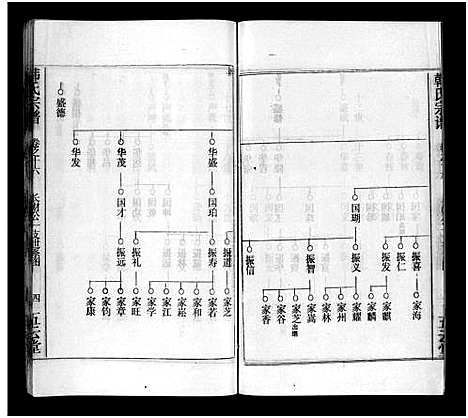 韩氏宗谱
国瑚
振喜
振仁
振发
振义
振智
振信
家海
家麒
家麟
家耀
家州
家林
家嵩
家芝出继
家谷
家香
盛德
华盛
华茂
华发
国珀
国才
振道
振寿
振礼
振远
家芝
家若
家和
家崧
家江
家学
家旺
家章
家钧
家康
韩氏宗谱
四
五云堂